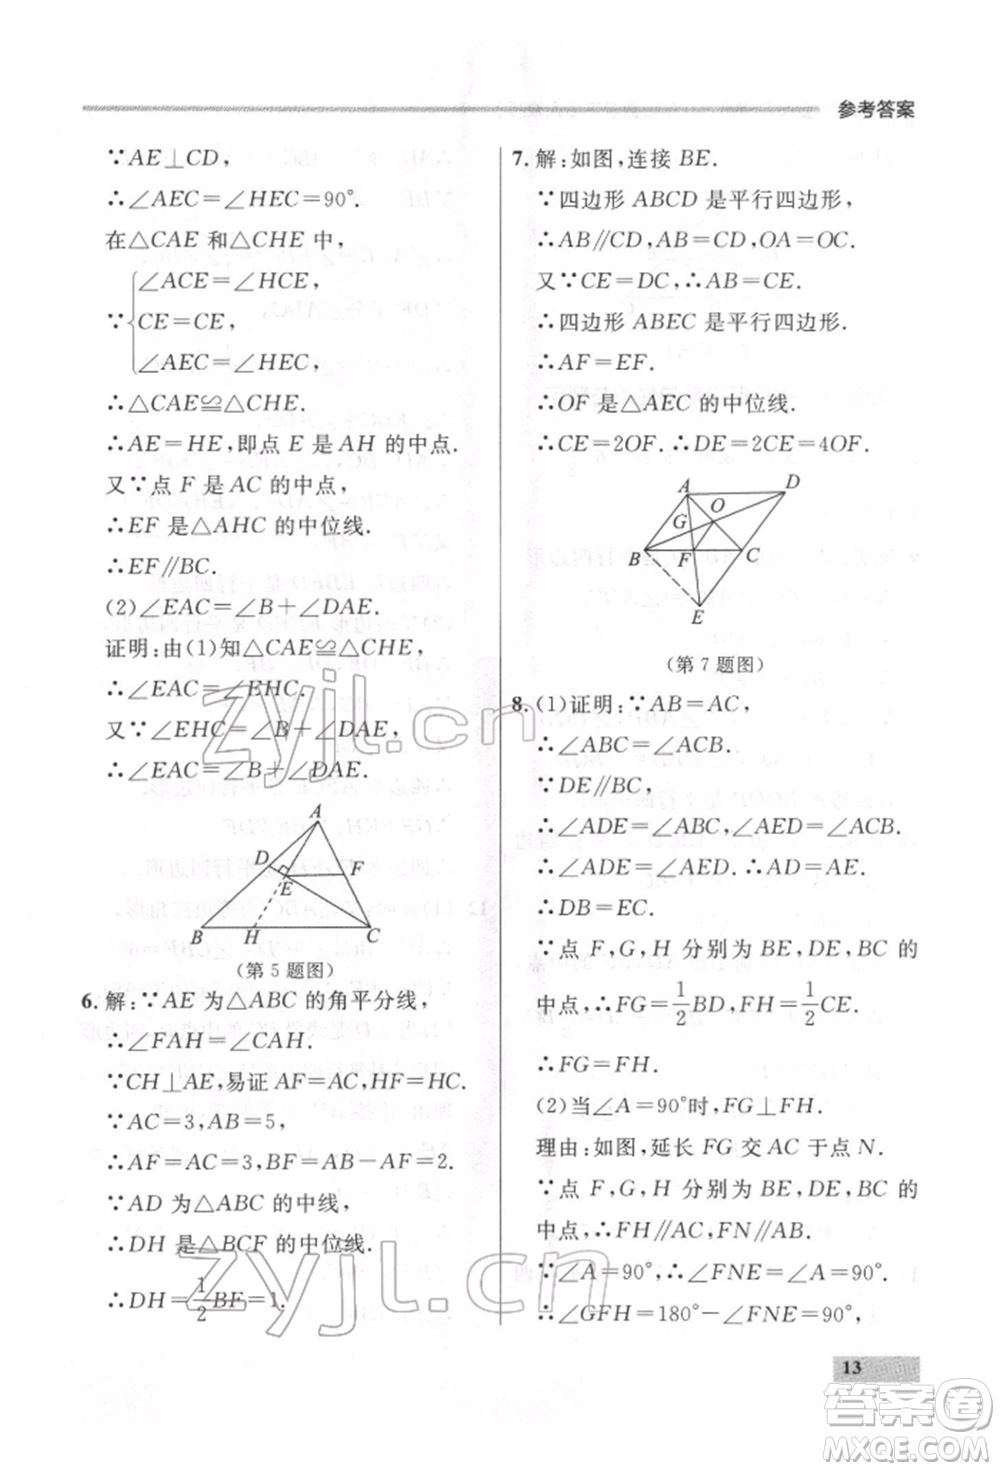 参考答案
∵AE⊥CD,
∴∠AEC=∠HEC=90°.
在△CAE 和△CHE 中,
∠ACE=∠HCE,
∵ CE=CE,
∠AEC=∠HEC,
∴△CAE≌△CHE.
∴AE=HE,即点 E 是 AH 的中点.
又∵点 F 是 AC 的中点,
∴EF 是△AHC 的中位线.
∴EF∥BC.
(2)∠EAC=∠B+∠DAE.
证明:由(1)知△CAE≌△CHE,
∴∠EAC=∠EHC.
又∵∠EHC=∠B+∠DAE,
∴∠EAC=∠B+∠DAE.
A
D
E
F
B
H
C
(第 5 题图)
6. 解:∵AE 为△ABC 的角平分线,
∴∠FAH=∠CAH.
∵CH⊥AE,易证 AF=AC,HF=HC.
∵AC=3,AB=5,
∴AF=AC=3,BF=AB-AF=2.
∵AD 为△ABC 的中线,
∴DH 是△BCF 的中位线.
∴DH=1/2BF=1.
7. 解:如图,连接 BE.
∵四边形 ABCD 是平行四边形,
∴AB∥CD,AB=CD,OA=OC.
又∵CE=DC,∴AB=CE.
∴四边形 ABEC 是平行四边形.
∴AF=EF.
∴OF 是△AEC 的中位线.
∴CE=2OF.∴DE=2CE=4OF.
A
D
O
G
B
F
C
E
(第 7 题图)
8. (1)证明:∵AB=AC,
∴∠ABC=∠ACB.
∵DE∥BC,
∴∠ADE=∠ABC,∠AED=∠ACB.
∴∠ADE=∠AED.∴AD=AE.
∴DB=EC.
∵点 F,G,H 分别为 BE,DE,BC 的
中点,∴FG=1/2BD,FH=1/2CE.
∴FG=FH.
(2)当∠A=90°时,FG⊥FH.
理由:如图,延长 FG 交 AC 于点 N.
∵点 F,G,H 分别为 BE,DE,BC 的
中点,∴FH∥AC,FN∥AB.
∵∠A=90°,∴∠FNE=∠A=90°.
∴∠GFH=180°-∠FNE=90°,
13
zyjl.cn
zyjl.cn
答案圈
MXQE.COM